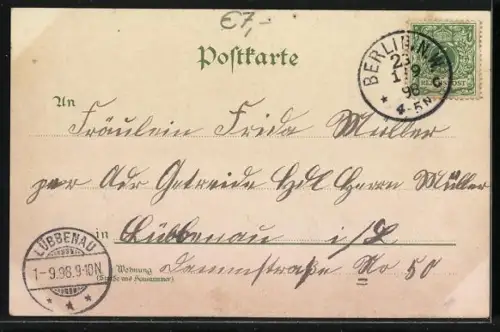 €7,-
Postkarte
BERLIN.N.W.
1 9
98
4-5N
An
Fräulein Frida Müller
per Adr Getreide Hdl Herrn Müller
in Lübbenau i/L
Wohnung
(Straße und Hausnummer)
Dammstraße No 50
LÜBBENAU
1-9.98.9-10N